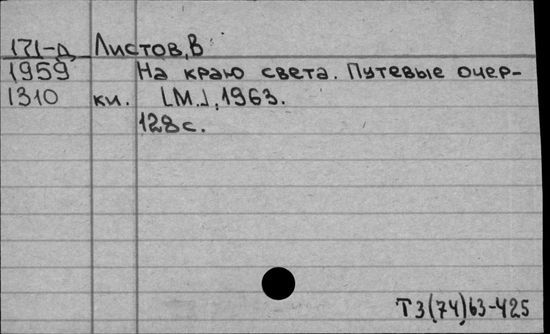 171-д Листов, В
1959 На краю света. Путевые очер-
1310 ки. [М.], 1963.
128 с.
Т3(74)63-425